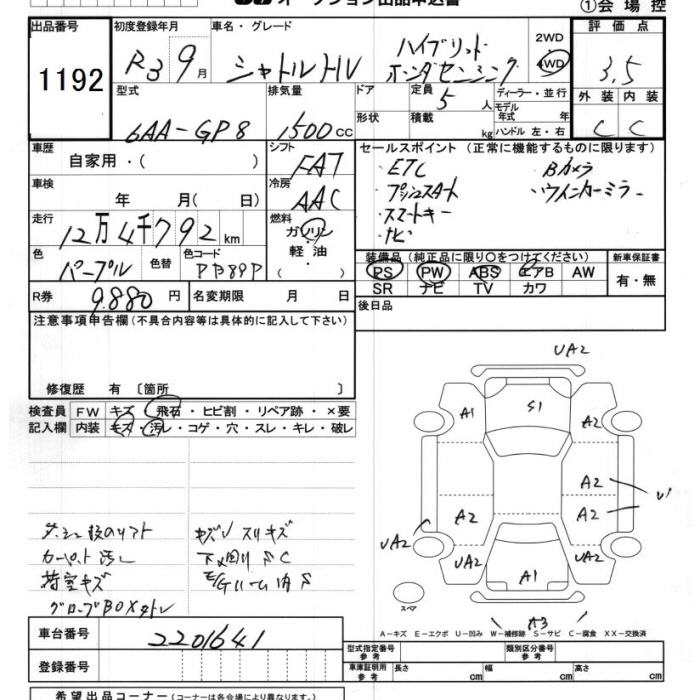 オークション出品申込書
①会場控
出品番号 初度登録年月 車名・グレード 評価点
1192 R3 9月 シャトルHV ハイブリッド ホンダセンシング 2WD 4WD 3.5
型式 排気量 ドア 定員 5人 ディーラー・並行 外装 内装
6AA-GP8 1500cc 形状 積載 kg モデル年式 年 ハンドル 左・右 C C
車歴 自家用・( ) シフト FAT セールスポイント(正常に機能するものに限ります)
・ETC ・Bカメラ
車検 年 月(日) 冷房 AAC ・プッシュスタート ・ウインカーミラー
・スマートキー
走行 12万4千792km 燃料 ガソリン 軽・油 ( ) ・ナビ
色 パープル 色替 色コード PB89P 装備品(純正品に限り○をつけてください) 新車保証書
PS PW ABS エアB AW 有・無
SR ナビ TV カワ
R券 9.880円 名変期限 月 日 後日品
注意事項申告欄(不具合内容等は具体的に記入して下さい)
修復歴 有〔箇所 〕
検査員 FW キズ・飛石・ヒビ割・リペア跡・×要
記入欄 内装 キズ・汚レ・コゲ・穴・スレ・キレ・破レ
UA2
A1 S1 A2
A2 U1
A2 A2
UA2 UA2
UA2 UA2
A1
スペア A3
キズ スリキズ
カーペット汚レ 下廻りSC
荷室キズ E/Gルーム内S
グローブBOX
A-キズ E-エクボ U-凹み W-補修跡 S-サビ C-腐食 XX-交換済
車台番号 2201641
型式指定番号 参考 類別区分番号 参考
登録番号 車庫証明用 参考 長さ cm 幅 cm 高さ cm
希望出品コーナー(コーナーは各会場により異なります。)